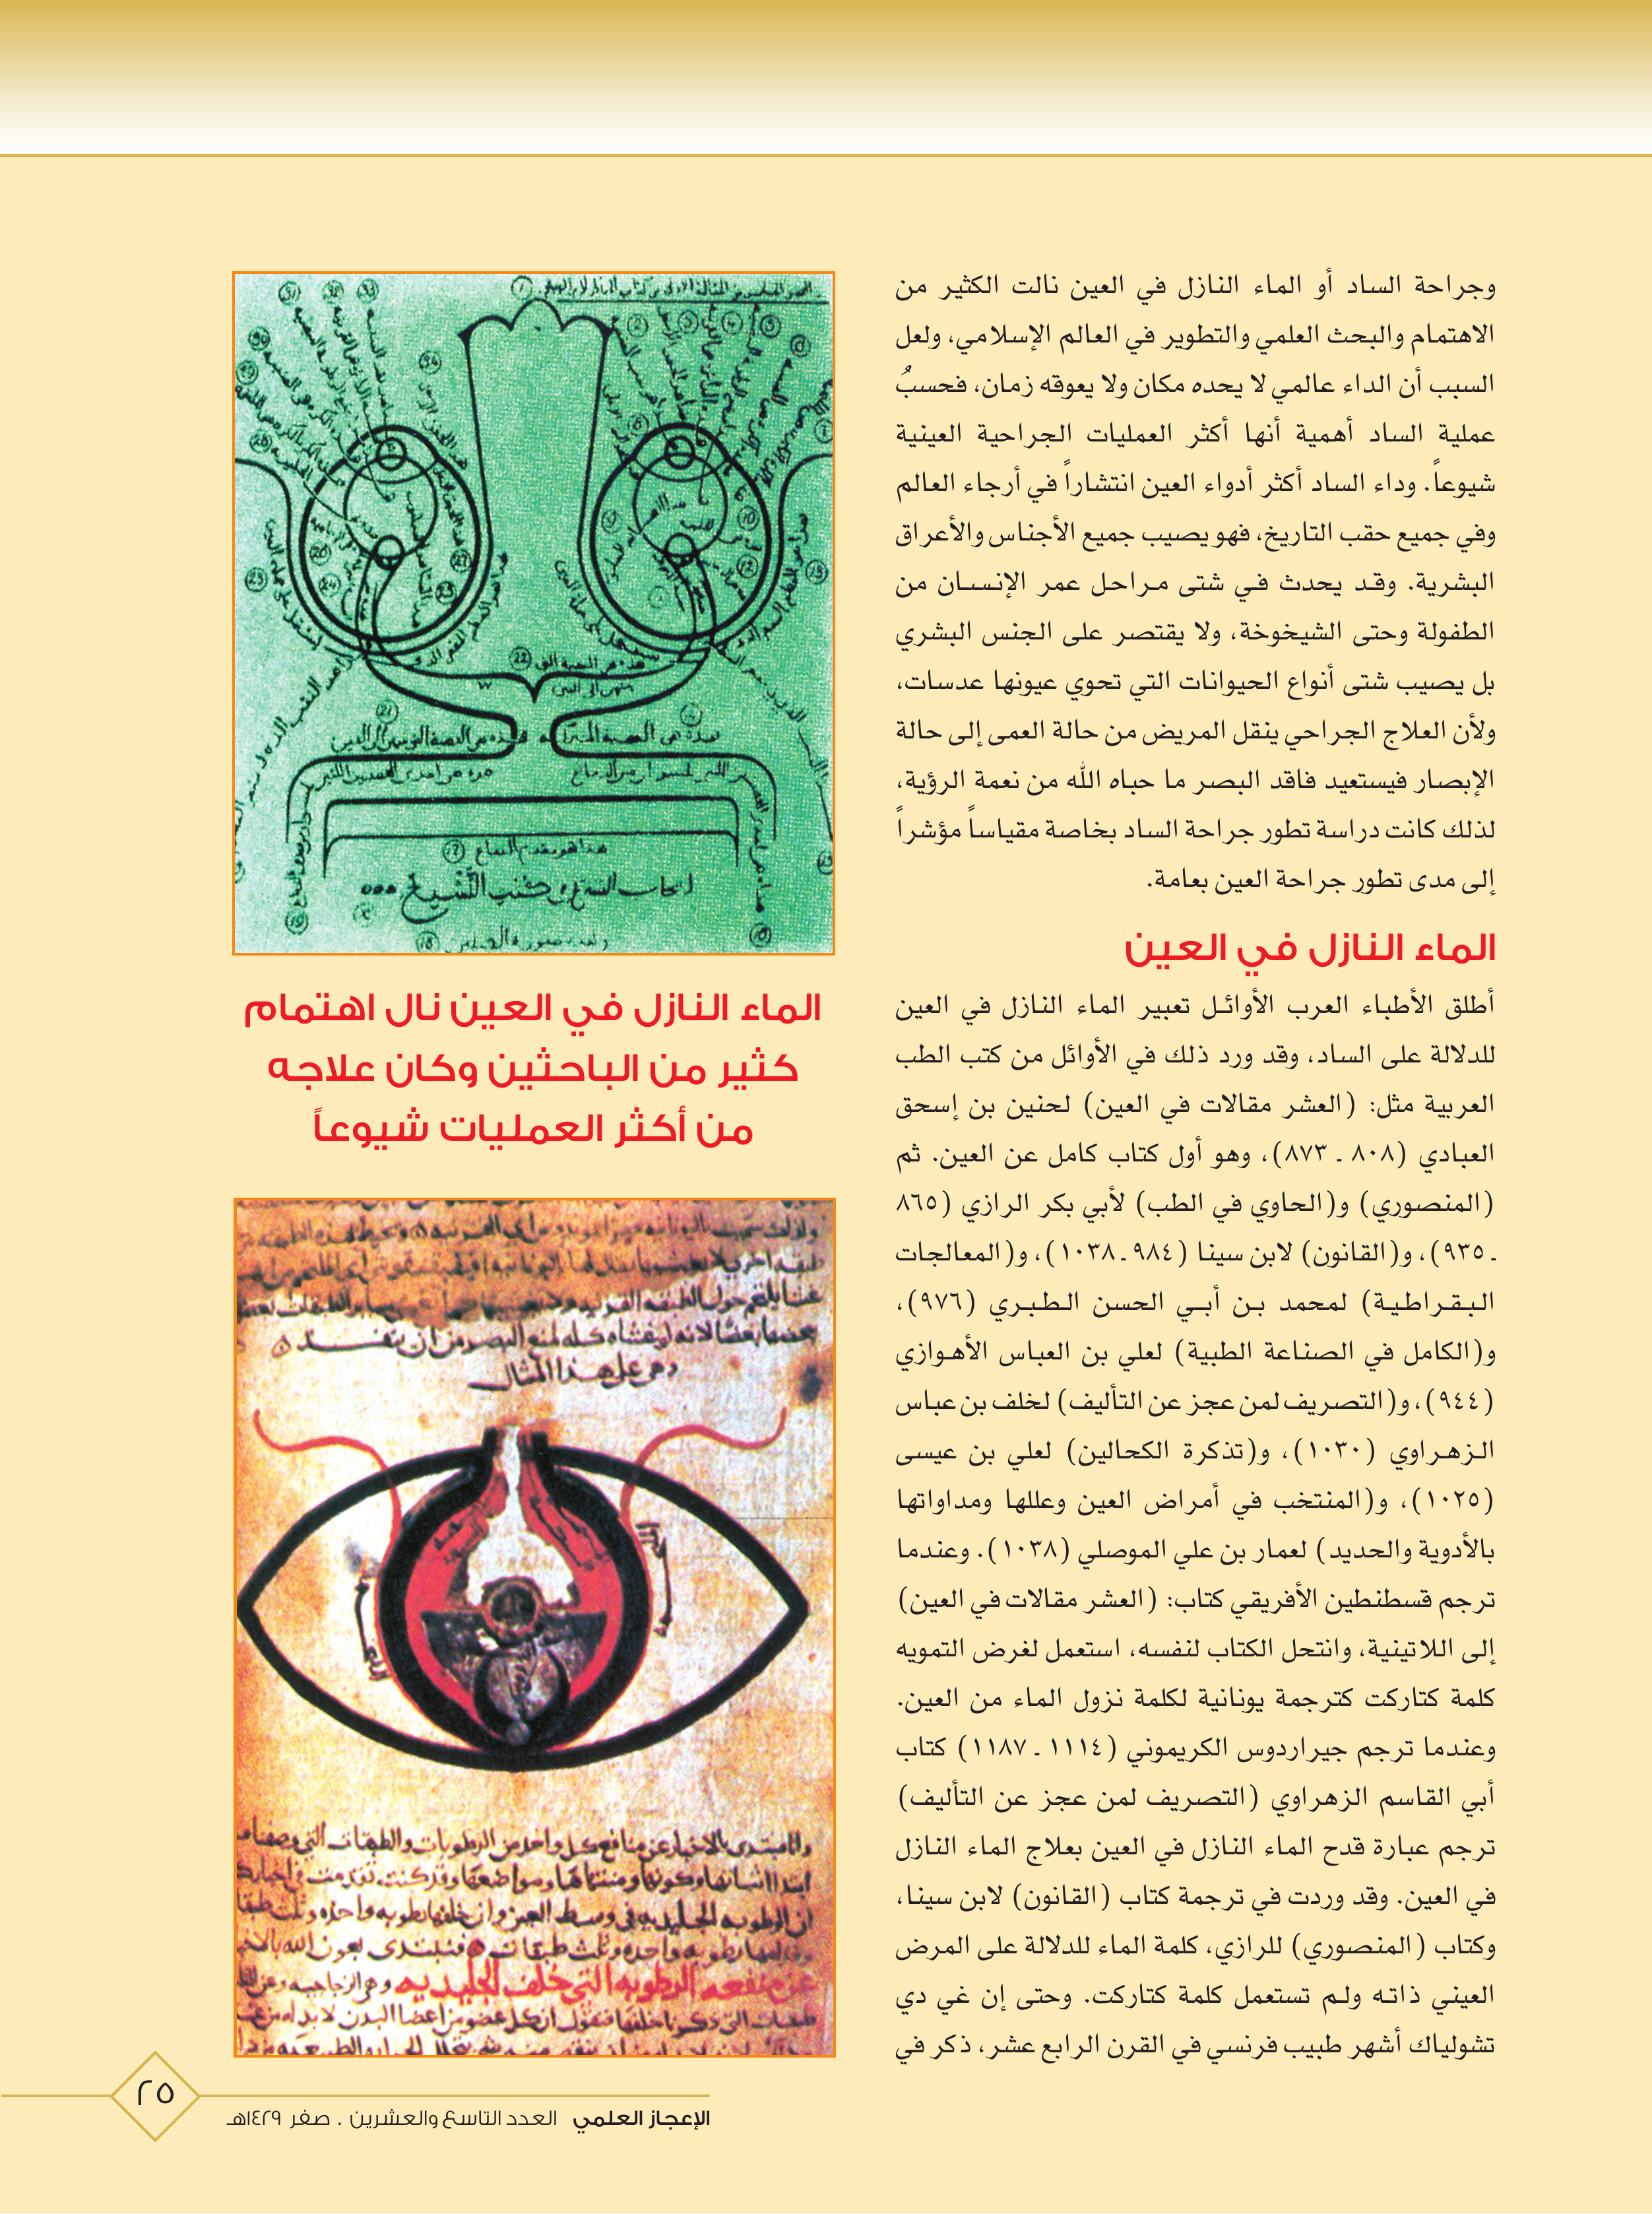 وجراحة الساد أو الماء النازل في العين نالت الكثير من
الاهتمام والبحث العلمي والتطوير في العالم الإسلامي، ولعل
السبب أن الداء عالمي لا يحده مكان ولا يعوقه زمان، فحسبُ
عملية الساد أهمية أنها أكثر العمليات الجراحية العينية
شيوعاً. وداء الساد أكثر أدواء العين انتشاراً في أرجاء العالم
وفي جميع حقب التاريخ، فهو يصيب جميع الأجناس والأعراق
البشرية. وقد يحدث في شتى مراحل عمر الإنسان من
الطفولة وحتى الشيخوخة، ولا يقتصر على الجنس البشري
بل يصيب شتى أنواع الحيوانات التي تحوي عيونها عدسات،
ولأن العلاج الجراحي ينقل المريض من حالة العمى إلى حالة
الإبصار فيستعيد فاقد البصر ما حباه الله من نعمة الرؤية،
لذلك كانت دراسة تطور جراحة الساد بخاصة مقياساً مؤشراً
إلى مدى تطور جراحة العين بعامة.
الماء النازل في العين
أطلق الأطباء العرب الأوائل تعبير الماء النازل في العين
للدلالة على الساد، وقد ورد ذلك في الأوائل من كتب الطب
العربية مثل: (العشر مقالات في العين) لحنين بن إسحق
العبادي (٨٠٨ ـ ٨٧٣)، وهو أول كتاب كامل عن العين. ثم
(المنصوري) و(الحاوي في الطب) لأبي بكر الرازي (٨٦٥
ـ ٩٣٥)، و(القانون) لابن سينا (٩٨٤ ـ ١٠٣٨)، و(المعالجات
البقراطية) لمحمد بن أبي الحسن الطبري (٩٧٦)،
و(الكامل في الصناعة الطبية) لعلي بن العباس الأهوازي
(٩٤٤)، و(التصريف لمن عجز عن التأليف) لخلف بن عباس
الزهراوي (١٠٣٠)، و(تذكرة الكحالين) لعلي بن عيسى
(١٠٢٥)، و(المنتخب في أمراض العين وعللها ومداواتها
بالأدوية والحديد) لعمار بن علي الموصلي (١٠٣٨). وعندما
ترجم قسطنطين الأفريقي كتاب: (العشر مقالات في العين)
إلى اللاتينية، وانتحل الكتاب لنفسه، استعمل لغرض التمويه
كلمة كتاركت كترجمة يونانية لكلمة نزول الماء من العين.
وعندما ترجم جيراردوس الكريموني (١١١٤ ـ ١١٨٧) كتاب
أبي القاسم الزهراوي (التصريف لمن عجز عن التأليف)
ترجم عبارة قدح الماء النازل في العين بعلاج الماء النازل
في العين. وقد وردت في ترجمة كتاب (القانون) لابن سينا،
وكتاب (المنصوري) للرازي، كلمة الماء للدلالة على المرض
العيني ذاته ولم تستعمل كلمة كتاركت. وحتى إن غي دي
تشولياك أشهر طبيب فرنسي في القرن الرابع عشر، ذكر في
الماء النازل في العين نال اهتمام
كثير من الباحثين وكان علاجه
من أكثر العمليات شيوعاً
وهي على هذا المثال
الإعجاز العلمي العدد التاسع والعشرين . صفر ١٤٢٩هـ
٢٥